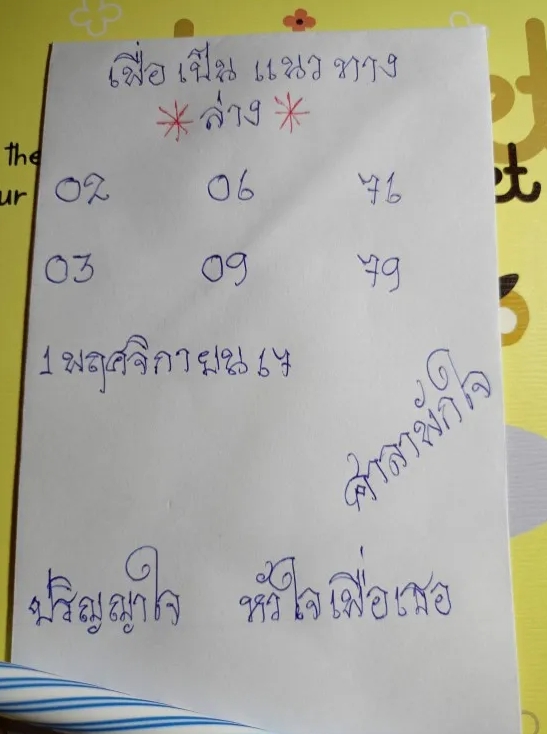 เพื่อ เป็น แนว ทาง
* ล่าง *
02 06 76
03 09 79
1 พฤศจิกายน 67
ศาลาพักใจ
ปริญญาใจ หัวใจเพื่อเธอ
the
ur
et
et